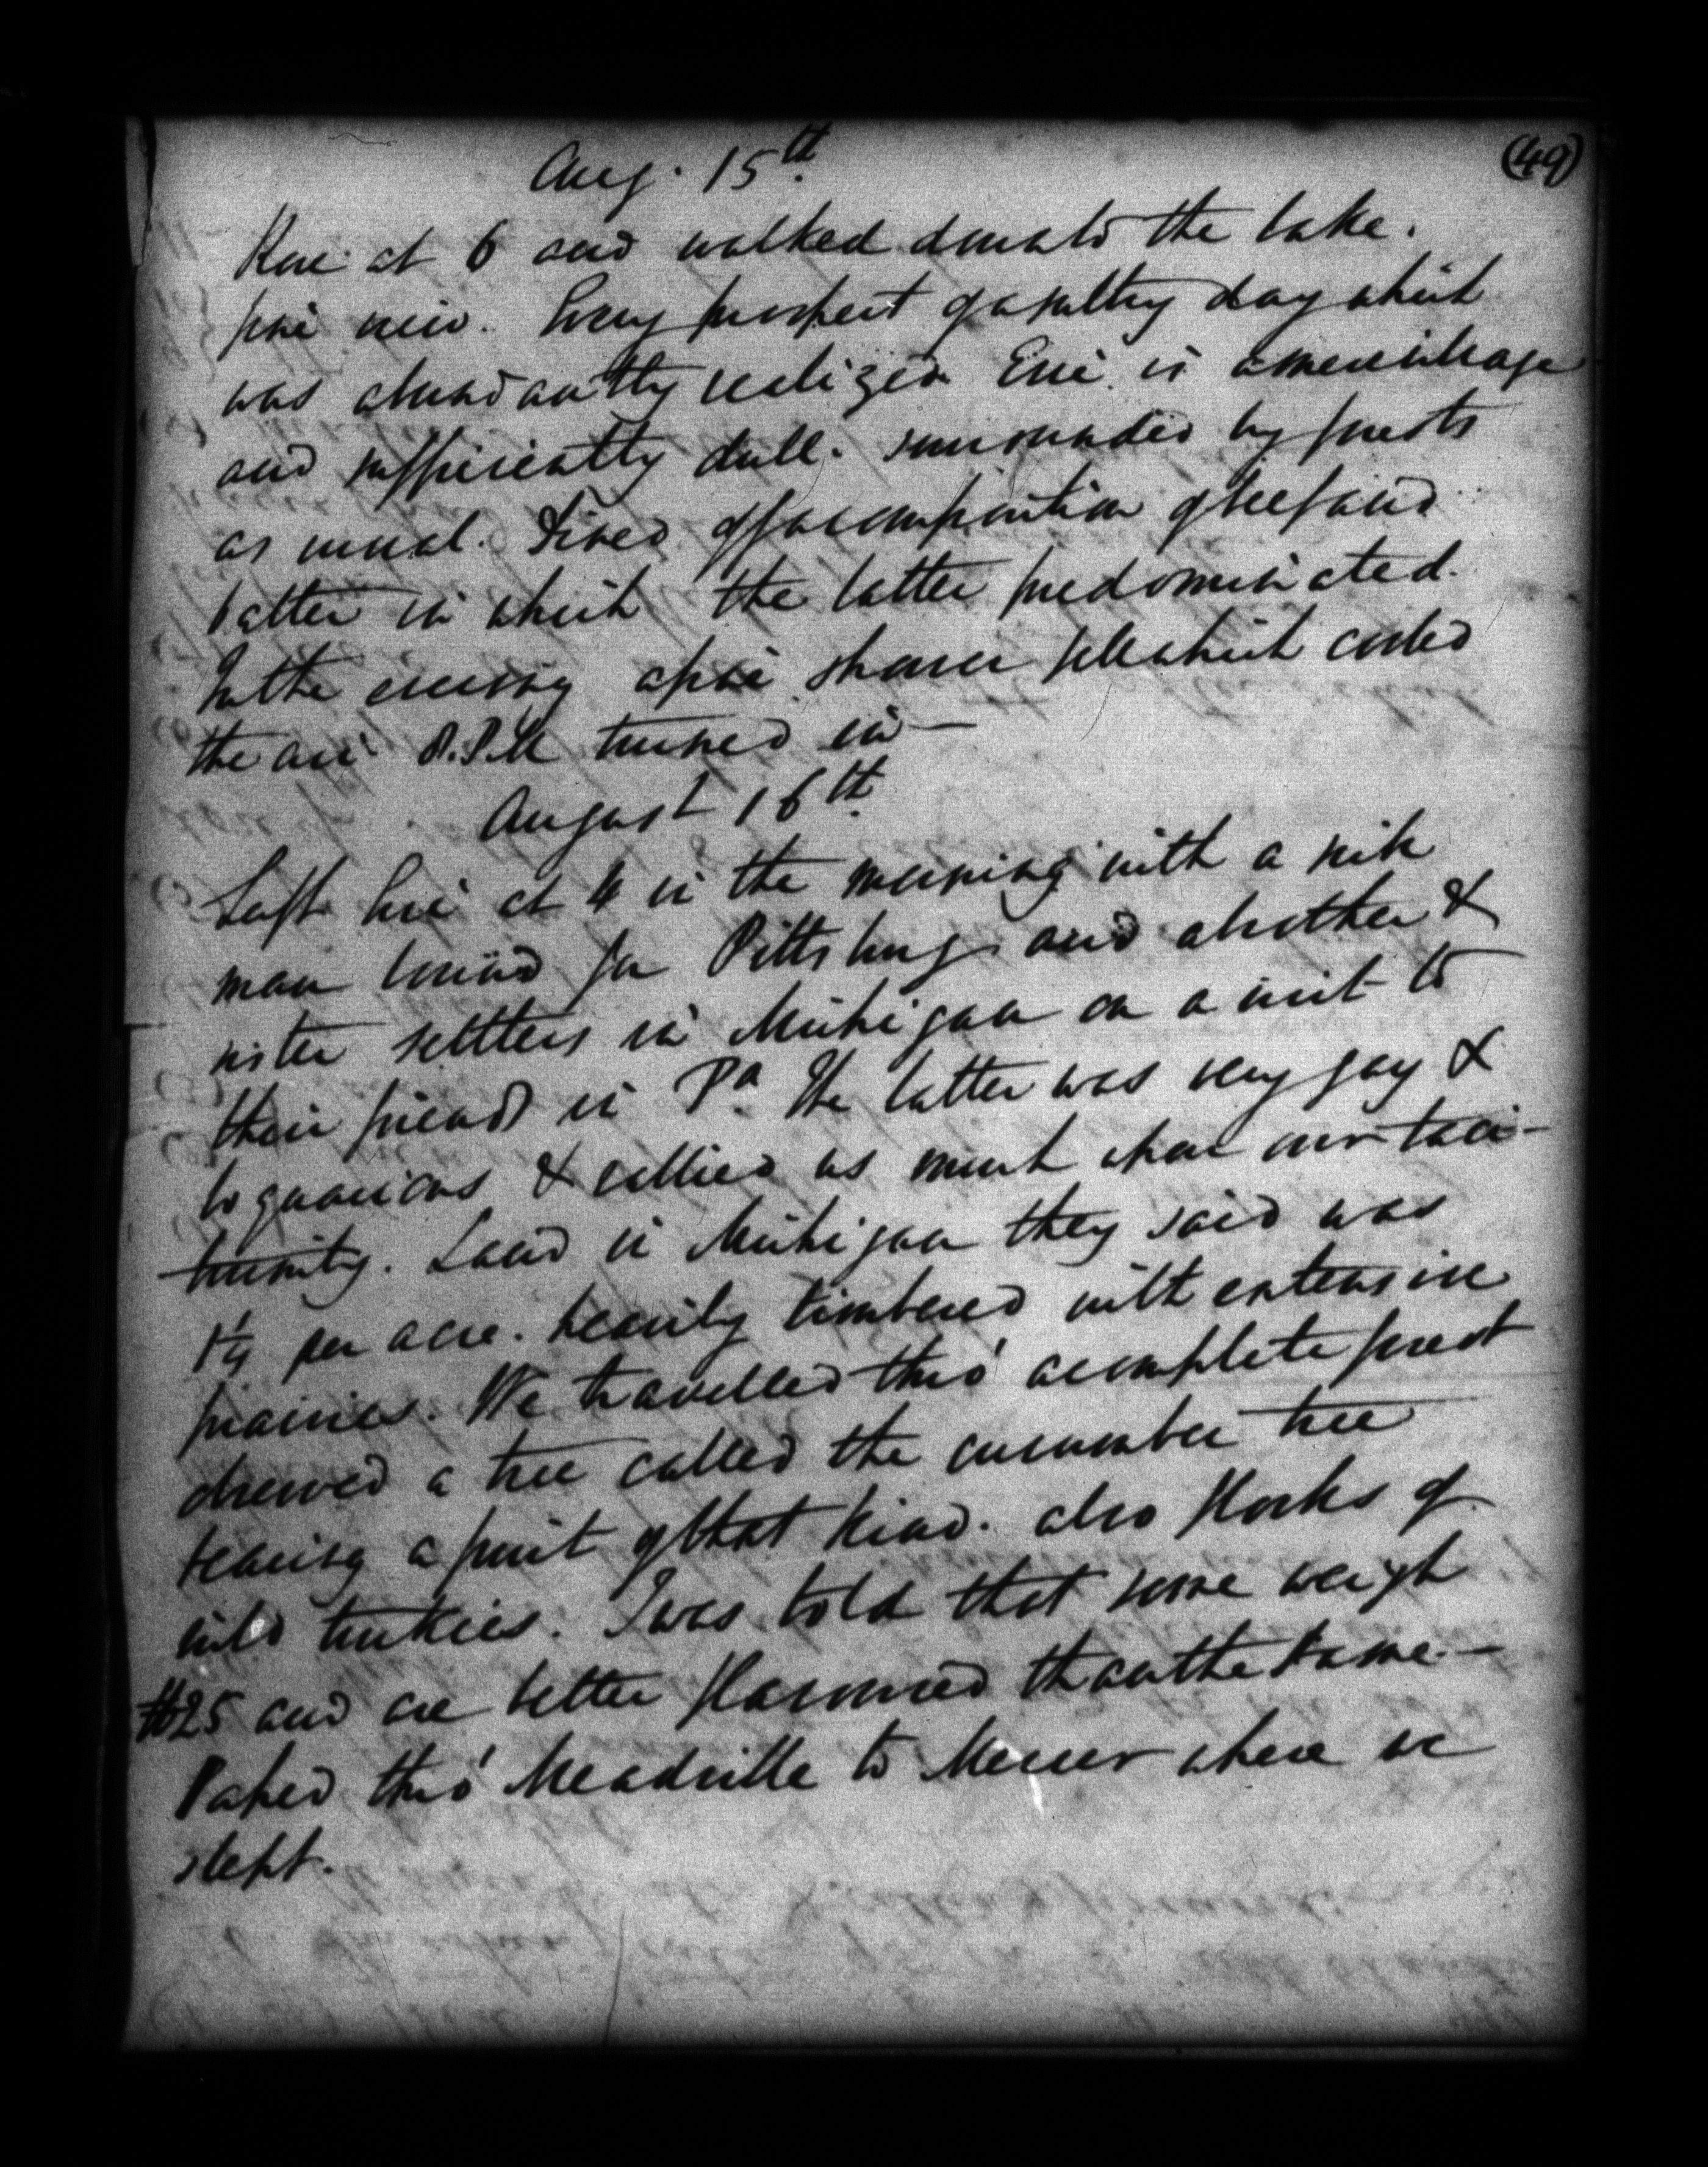 (49)
Aug. 15th
Rose at 6 and walked down to the lake.
fine view. Every prospect of a sultry day which
was abundantly realized Erie is a mere village
and sufficiently dull. surrounded by forests
as usual. Dined off a composition of beef and
batter in which the latter predominated.
In the evening a fine shower fell which cooled
the air P.P.M turned in —
August 16th
Left Erie at 4 in the morning with a sick
man bound for Pittsburg and a brother &
sister settlers in Michigan on a visit to
their friends in Pa. The latter was very gay &
loquacious & rallied us much upon our taci-
turnity. Land in Michigan they said was
1¼ per acre. heavily timbered with extensive
prairies. We travelled thro' a complete forest
observed a tree called the cucumber tree
bearing a fruit of that kind. also flocks of
wild turkies. I was told that some weigh
℔25 and are better flavoured than the tame —
Passed thro' Meadville to Mercer where we
slept.